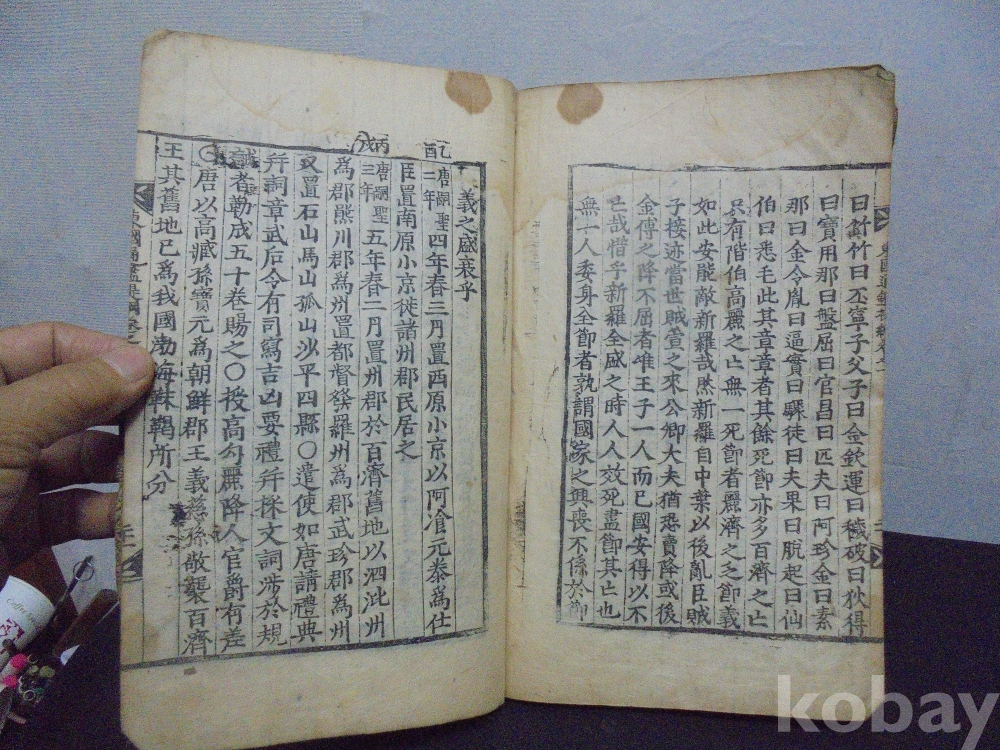 曰䇲竹曰丕寧子父子曰金欽運曰穢破曰狄得
曰寶用那曰盤屈曰官昌曰匹夫曰阿珍金曰素
那曰金令胤曰逼實曰驟徒曰夫果曰脫起曰仙
伯曰悉毛此其章章者其餘死節亦多百濟之亡
只有階伯高麗之亡無一死節者麗濟之之節義
如此安能敵新羅哉然新羅自中葉以後亂臣賊
子接迹當世賊萱之來公卿大夫猶恐賣降或後
金傅之降不屈者唯王子一人而已國安得以不
亡哉惜乎新羅全盛之時人人效死盡節其亡也
無一人委身全節者孰謂國家之興喪不係於節
義之盛衰乎
乙酉
唐嗣聖二年
四年春三月置西原小京以阿飡元泰爲仕
臣置南原小京徙諸州郡民居之
丙戌
唐嗣聖三年
五年春二月置州郡於百濟舊地以泗沘州
爲郡熊川郡爲州置都督發羅州爲郡武珍郡爲州
又置石山馬山孤山沙平四縣○遣使如唐請禮典
幷詞章武后令有司寫吉凶要禮幷採文詞涉於規
誡者勒成五十卷賜之○授高勾麗降人官爵有差
○唐以高臧孫寶元爲朝鮮郡王義慈孫敬襲百濟
王其舊地已爲我國渤海靺鞨所分
kobay